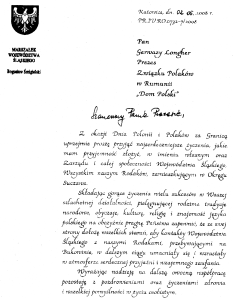 Katowice, dn. 04.05.2006 r.
MARSZAŁEK
WOJEWÓDZTWA
ŚLĄSKIEGO
Pan
Gerwazy Longher
Prezes
Związku Polaków
w Rumunii
„Dom Polski”
Szanowny Panie Prezesie,
Z okazji Dnia Polonii i Polaków za Granicą
uprzejmie proszę przyjąć najserdeczniejsze życzenia, jakie
mam przyjemność złożyć w imieniu własnym oraz
Zarządu i całej społeczności Województwa Śląskiego
Wszystkim naszym Rodakom, zamieszkującym w Okręgu
Suczawa.
Składając gorące życzenia wielu sukcesów w Waszej
szlachetnej działalności, pielęgnującej rodzime tradycje
narodowe, obyczaje, kulturę, religię i znajomość języka
polskiego na obczyźnie pragnę Państwa zapewnić, że ze swej
strony dołożę wszelkich starań, aby kontakty Województwa
Śląskiego z naszymi Rodakami, przebywającymi na
Bukowinie, w dalszym ciągu umacniały się i wzrastały
w atmosferze serdecznej przyjaźni i wzajemnego zaufania.
Wyrażając nadzieję na dalszą owocną współpracę
pozostaję z pozdrowieniami oraz życzeniami zdrowia
i wszelkiej pomyślności w życiu osobistym.